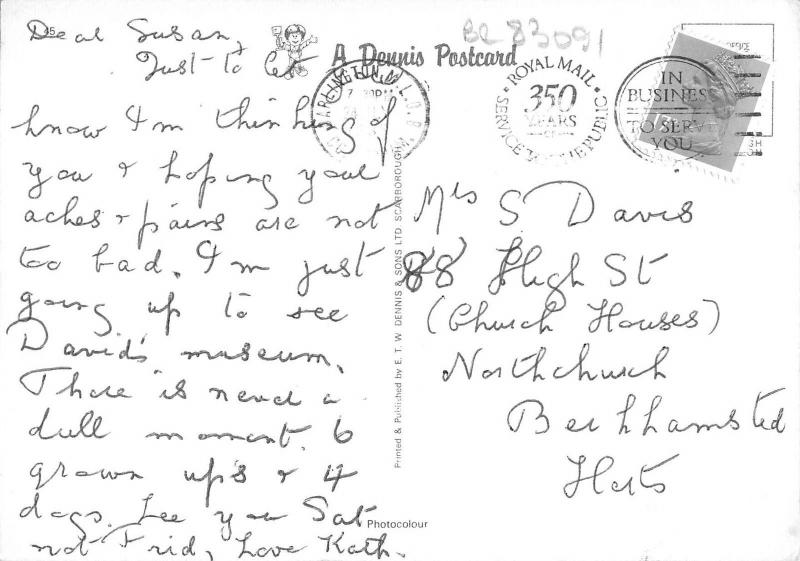 45
BC 83091
A Dennis Postcard
Dear Susan,
Just to let
know I'm thinking of
you & hoping your
aches & pains are not
too bad. I'm just
going up to see
David's museum.
There is never a
dull moment. 6
grown up's & 4
dogs. See you Sat
not Frid, Love Kath.
Printed & Published by E. T. W. DENNIS & SONS LTD SCARBOROUGH
Photocolour
ROYAL MAIL
350
YEARS
OF
SERVICE TO THE PUBLIC
IN
BUSINESS
TO SERVE
YOU
Mrs S Davis
88 High St
(Church Houses)
Northchurch
Berkhamsted
Herts